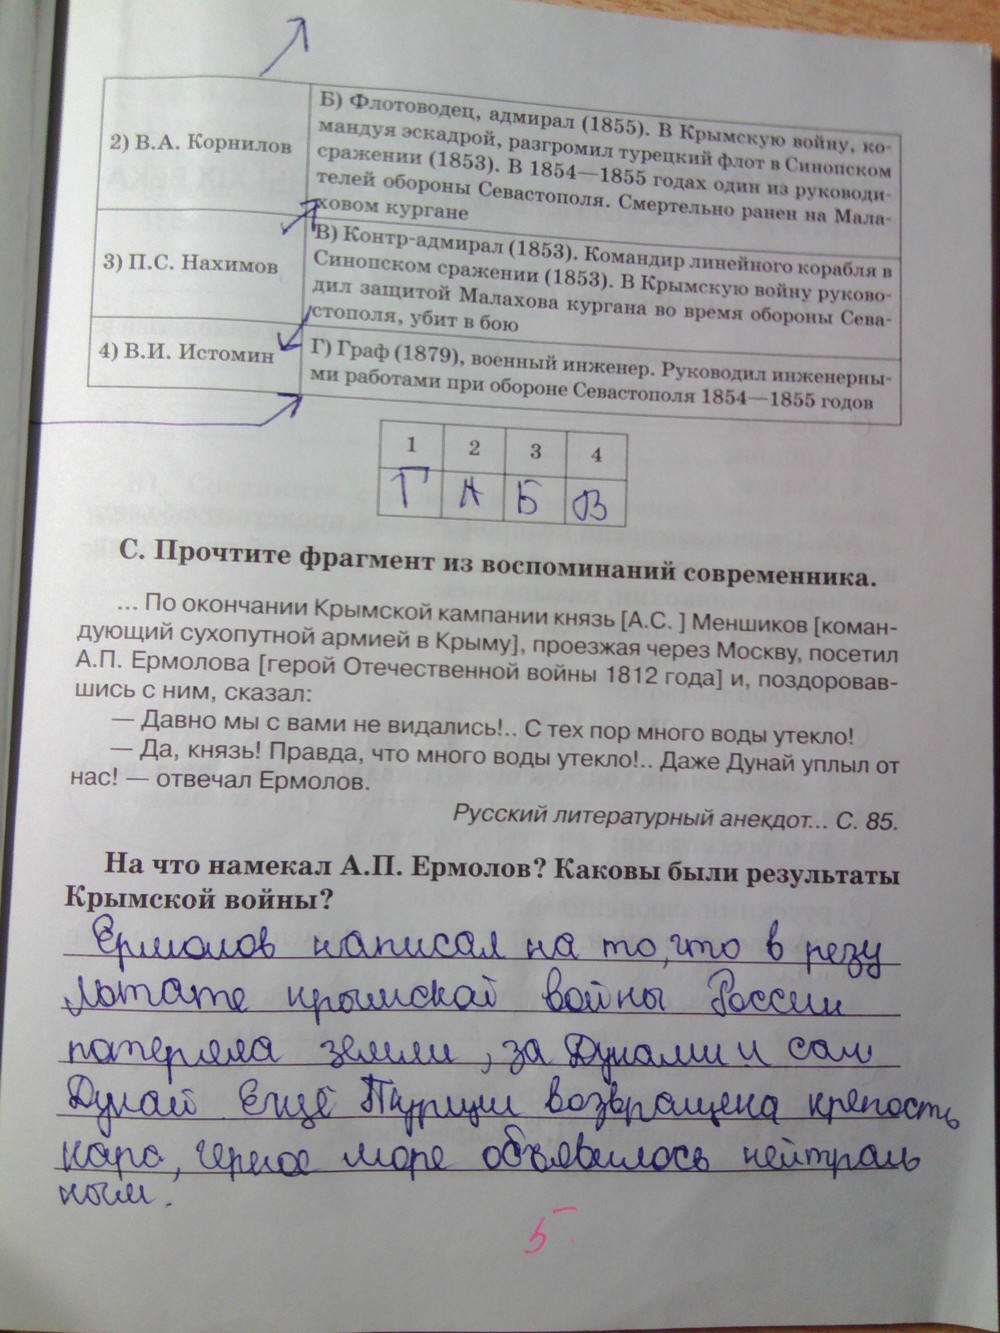 2) В.А. Корнилов
Б) Флотоводец, адмирал (1855). В Крымскую войну, ко-
мандуя эскадрой, разгромил турецкий флот в Синопском
сражении (1853). В 1854—1855 годах один из руководи-
телей обороны Севастополя. Смертельно ранен на Мала-
ховом кургане
3) П.С. Нахимов
В) Контр-адмирал (1853). Командир линейного корабля в
Синопском сражении (1853). В Крымскую войну руково-
дил защитой Малахова кургана во время обороны Сева-
стополя, убит в бою
4) В.И. Истомин
Г) Граф (1879), военный инженер. Руководил инженерны-
ми работами при обороне Севастополя 1854—1855 годов
1 2 3 4
Г А Б В
С. Прочтите фрагмент из воспоминаний современника.
... По окончании Крымской кампании князь [А.С. ] Меншиков [коман-
дующий сухопутной армией в Крыму], проезжая через Москву, посетил
А.П. Ермолова [герой Отечественной войны 1812 года] и, поздоровав-
шись с ним, сказал:
— Давно мы с вами не видались!.. С тех пор много воды утекло!
— Да, князь! Правда, что много воды утекло!.. Даже Дунай уплыл от
нас! — отвечал Ермолов.
Русский литературный анекдот... С. 85.
На что намекал А.П. Ермолов? Каковы были результаты
Крымской войны?
Ермолов написал на то, что в резу
льтате крымской войны России
потеряла земли, за Дунами и сам
Дунай Ещё Турции возвращена крепость
карс, черное море объявилось нейтраль
ным.
5